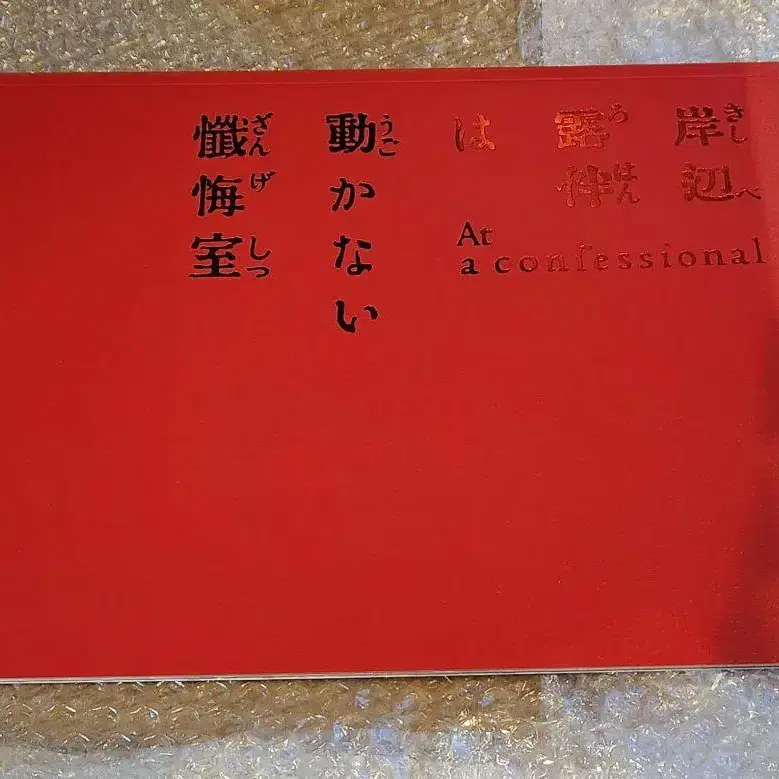 岸辺
きしべ
露伴
ろはん
は
動かない
うご
懺悔室
ざんげしつ
At
a confessional